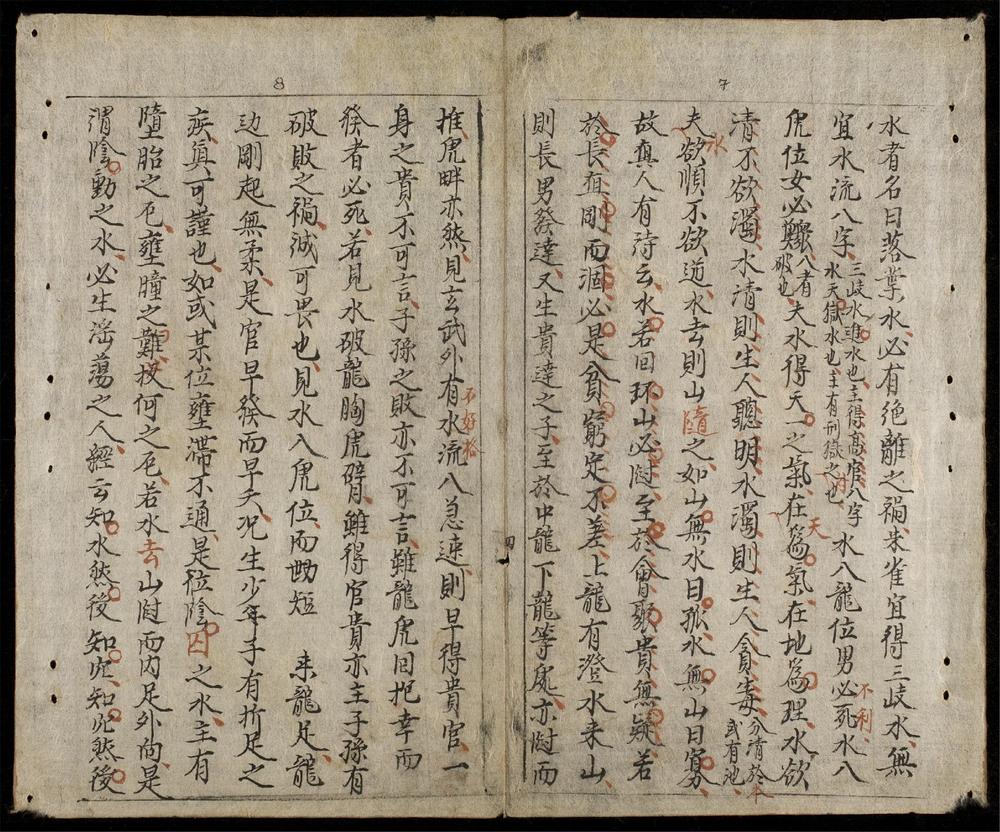 7
水者名曰落葉水必有绝離之禍朱雀宜得三岐水無
宜水流八字三岐水進水也主得高官八字水天獄水也主有刑獄之也水入龍位男必死水入
不利
虎位女必難八者破也夫水得天一之氣在天爲氣在地爲理水欲
清不欲濁水清則生人聰明水濁則生人貪毒
夫水欲順不欲逆水去則山隨之如山無水曰孤水無山曰寡
故真人有詩云水若回环山必尀至於會聚貴無疑若
於長直剛而涸必是貧窮定不差上龍有澄水来山
則長男發達又生貴達之子至於中龍下龍等處亦尀而
四
8
推虎畔亦然見玄武外有水流八急速則早得貴官一
不好格
身之貴不可言子孫之敗亦不可言雖龍虎回抱幸而
發者必死若見水破龍胸虎臂雖得官貴亦主子孫有
破敗之禍誠可畏也見水入虎位而 短 来龍足龍
边剛起無柔是官早發而早夭况生少年手有折足之
疾真可謹也如或某位壅滞不通是位陰囚之水主有
墮胎之厄壅瞳之難 何之厄若水去山尀而内足外向是
渭陰動之水必生淫蕩之人經云知水然後知穴知穴然後